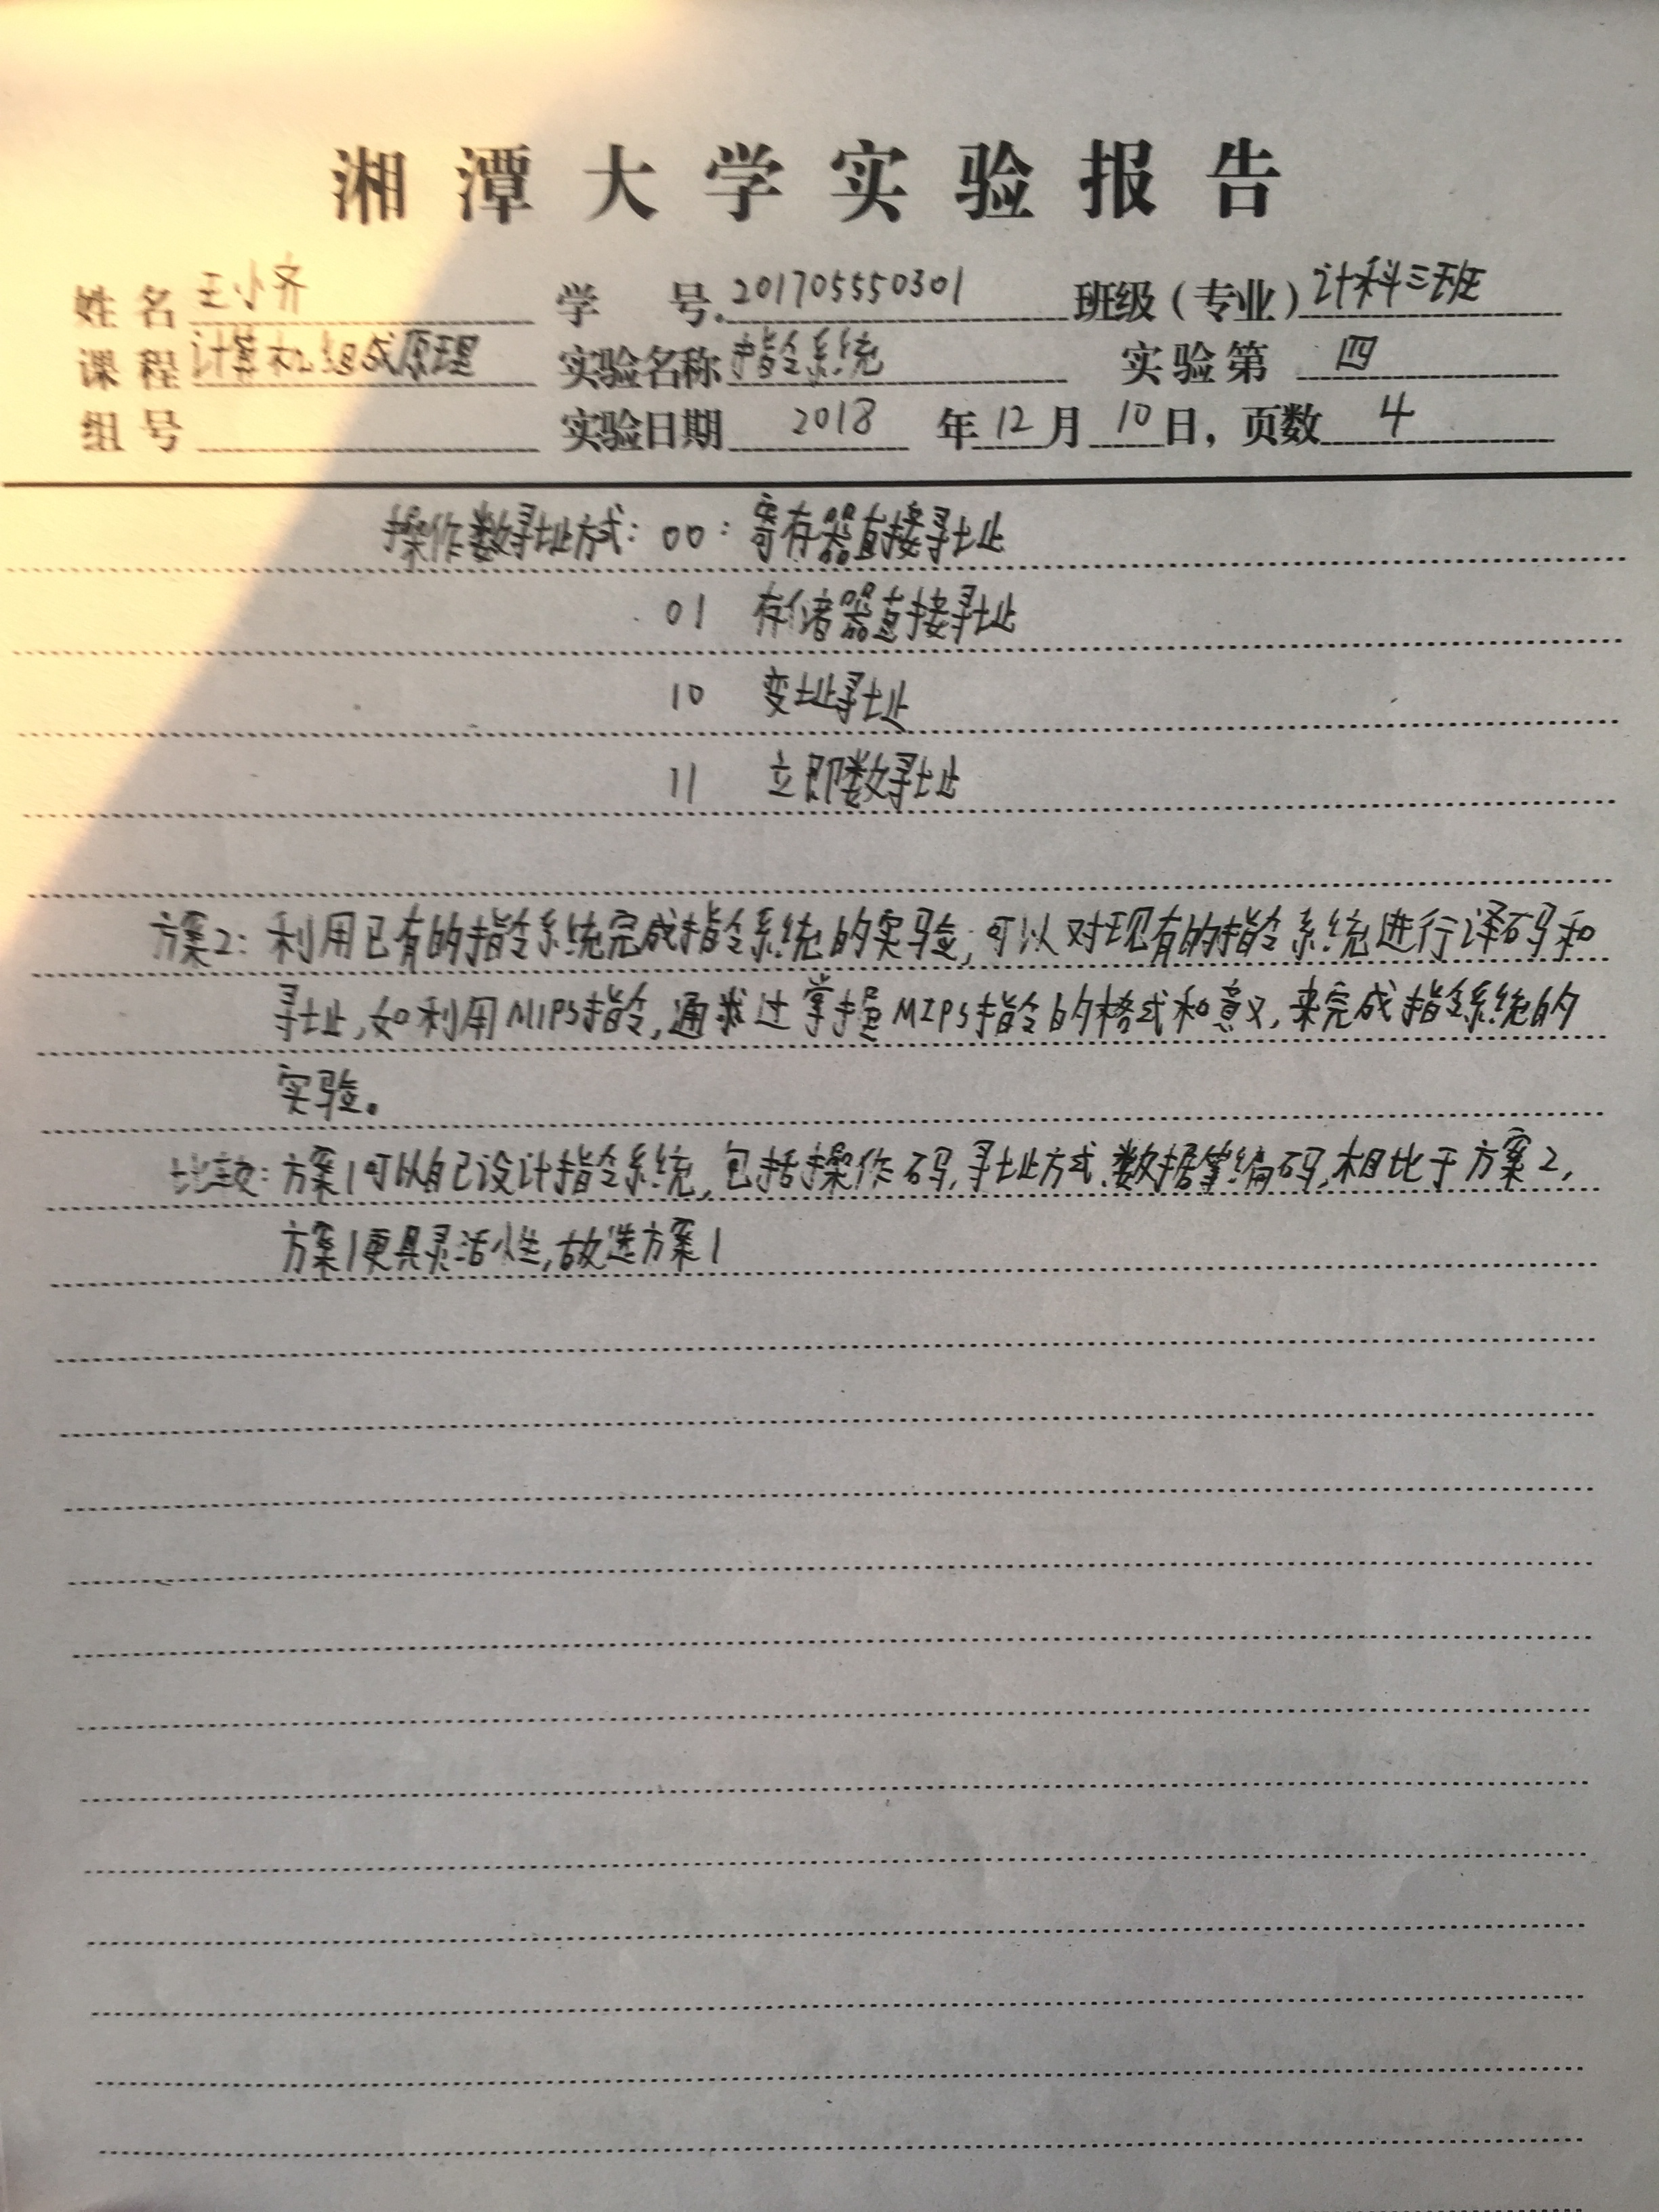 湘潭大学实验报告
姓名 王小齐 学号 201705550301 班级(专业) 计科三班
课程 计算机组成原理 实验名称 指令系统 实验第 四
组号 实验日期 2018 年 12 月 10 日, 页数 4
操作数寻址方式: 00: 寄存器直接寻址
01 存储器直接寻址
10 变址寻址
11 立即数寻址
方案2: 利用已有的指令系统完成指令系统的实验, 可以对现有的指令系统进行译码和
寻址, 如利用MIPS指令, 通过掌握MIPS指令的格式和意义, 来完成指令系统的
实验。
比较: 方案1可以自己设计指令系统, 包括操作码, 寻址方式、数据等编码, 相比于方案2,
方案1更具灵活性, 故选方案1